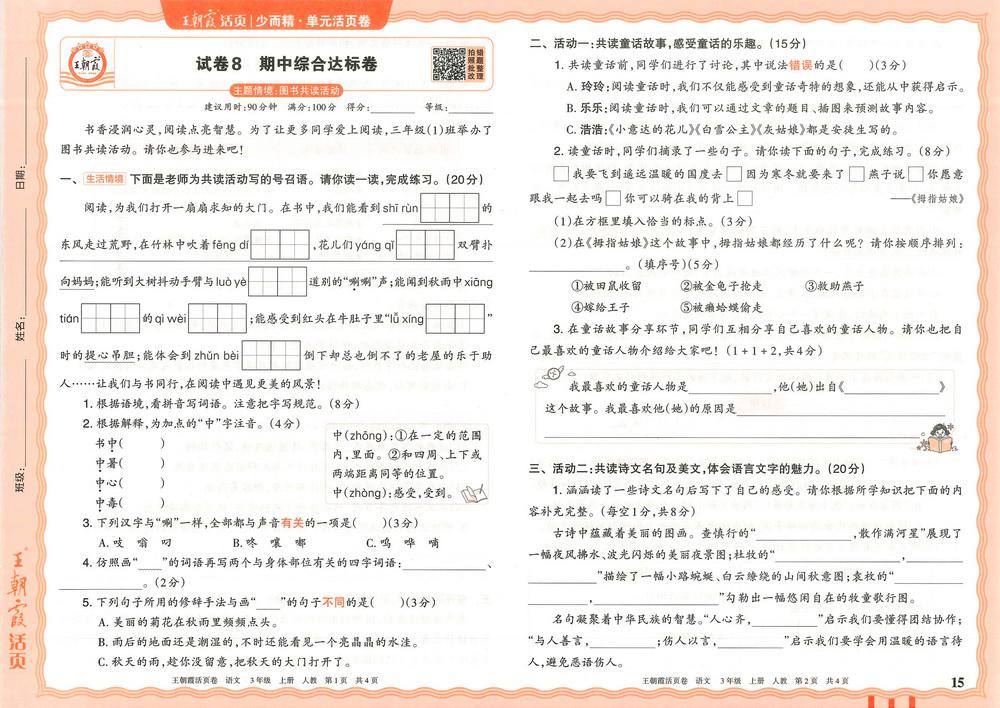 王朝霞活页 | 少而精·单元活页卷
王朝霞
试卷8 期中综合达标卷
拍照批改
错题整理
主题情境:图书共读活动
建议用时:90分钟 满分:100分 得分:______ 等级:______
书香浸润心灵,阅读点亮智慧。为了让更多同学爱上阅读,三年级(1)班举办了
图书共读活动。请你也参与进来吧!
一、生活情境 下面是老师为共读活动写的号召语。请你读一读,完成练习。(20分)
阅读,为我们打开一扇扇求知的大门。在书中,我们能看到 shī rùn 的
东风走过荒野,在竹林中吹着 fēng dí ,花儿们 yáng qǐ 双臂扑
向妈妈;能听到大树抖动手臂与 luò yè 道别的“唰唰”声;能闻到秋雨中 xiāng
tián 的 qì wèi ;能感受到红头在牛肚子里“lǚ xíng ”
时的提心吊胆;能体会到 zhǔn bèi 倒下却总也倒不了的老屋的乐于助
人……让我们与书同行,在阅读中遇见更美的风景!
1. 根据语境,看拼音写词语。注意把字写规范。(8分)
2. 根据解释,为加点的“中”字注音。(4分)
书中( )
中暑( )
中心( )
中毒( )
中(zhōng):①在一定的范围
内,里面。②和四周、上下或
两端距离同等的位置。
中(zhòng):感受,受到。
3. 下列汉字与“唰”一样,全部都与声音有关的一项是( )(3分)
A. 吱 嗡 叼 B. 咚 嚷 嘟 C. 呜 哗 嘀
4. 仿照画“____”的词语再写两个与身体部位有关的四字词语:__________、
__________。(2分)
5. 下列句子所用的修辞手法与画“____”的句子不同的是( )(3分)
A. 美丽的菊花在秋雨里频频点头。
B. 雨后的地面还是潮湿的,不时还能看见一个亮晶晶的水洼。
C. 秋天的雨,趁你没留意,把秋天的大门打开了。
王朝霞活页卷 语文 3年级 上册 人教 第1页 共4页
二、活动一:共读童话故事,感受童话的乐趣。(15分)
1. 共读童话前,同学们进行了讨论,其中说法错误的是( )(3分)
A. 玲玲:阅读童话时,我们不仅能感受到童话奇特的想象,还能从中获得启示。
B. 乐乐:阅读童话时,我们可以通过文章的题目、插图来预测故事内容。
C. 浩浩:《小意达的花儿》《白雪公主》《灰姑娘》都是安徒生写的。
2. 读童话时,同学们摘录了一些句子。请你读下面的句子,完成练习。(8分)
□我要飞到遥远温暖的国度去□因为寒冬就要来了□燕子说□你愿意
跟我一起去吗□你可以骑在我的背上□ ——《拇指姑娘》
(1)在方框里填入恰当的标点。(3分)
(2)在《拇指姑娘》这个故事中,拇指姑娘都经历了什么呢?请你按顺序排列:
__________。(填序号)(5分)
①被田鼠收留 ②被金龟子抢走 ③救助燕子
④嫁给王子 ⑤被癞蛤蟆偷走
3. 在童话故事分享环节,同学们互相分享自己喜欢的童话人物。请你也把自
己最喜欢的童话人物介绍给大家吧!(1+1+2,共4分)
我最喜欢的童话人物是__________,他(她)出自《__________》
这个故事。我最喜欢他(她)的原因是__________
三、活动二:共读诗文名句及美文,体会语言文字的魅力。(20分)
1. 涵涵读了一些诗文名句后写下了自己的感受。请你根据所学知识把下面的内
容补充完整。(每空1分,共8分)
古诗中蕴藏着美丽的图画。查慎行的“__________,散作满河星”展现了
一幅夜风拂水、波光闪烁的美丽夜景图;杜牧的“__________,__________,
__________”描绘了一幅小路蜿蜒、白云缭绕的山间秋意图;袁枚的“__________
__________,__________”勾勒出一幅悠闲自在的牧童歌行图。
名句凝聚着中华民族的智慧。“人心齐,__________”启示我们要懂得团结协作;
“与人善言,__________;伤人以言,__________”启示我们要学会用温暖的语言待
人,避免恶语伤人。
王朝霞活页卷 语文 3年级 上册 人教 第2页 共4页
15
日期:
姓名:
班级:
王朝霞活页